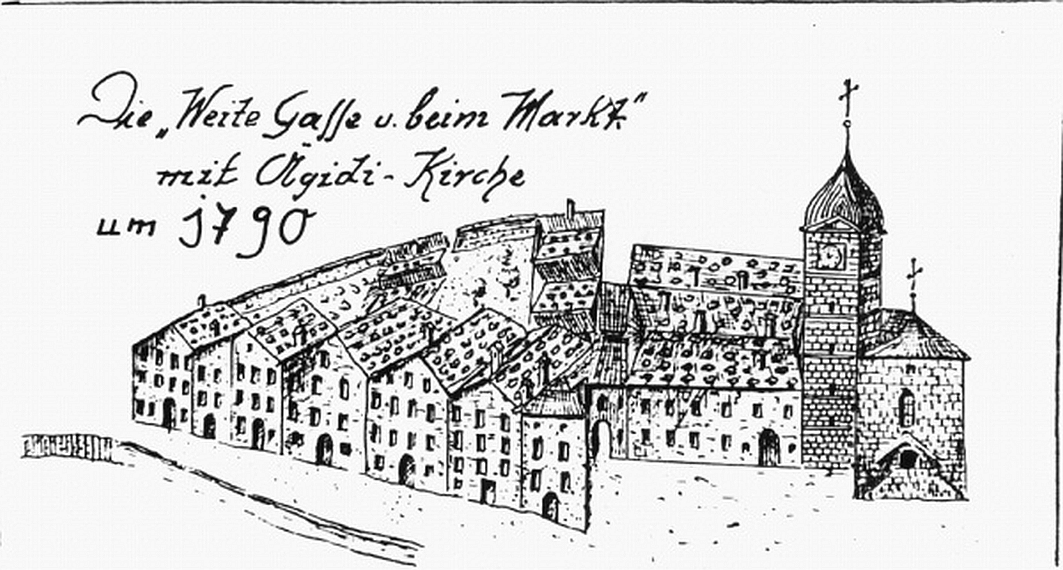 Die „Weite Gasse u. beim Markt."
mit Ägidi-Kirche
um 1790